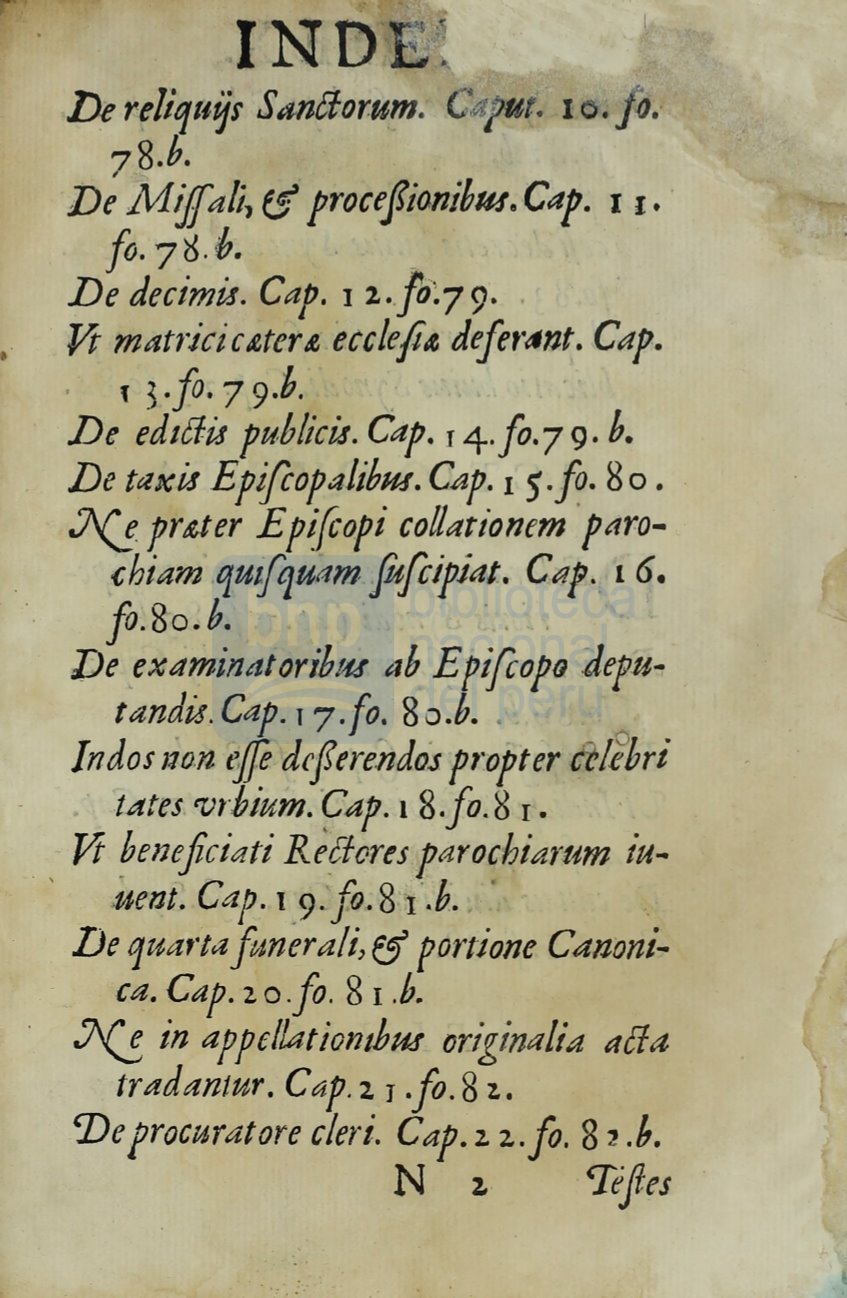 INDE
De reliquijs Sanctorum. Caput. 10. fo.
78.b.
De Miſſali, & proceßionibus. Cap. 11.
fo. 78.b.
De decimis. Cap. 12. fo.79.
Vt matrici cæteræ eccleſiæ deferant. Cap.
13. fo. 79.b.
De edictis publicis. Cap. 14. fo.79. b.
De taxis Epiſcopalibus. Cap. 15. fo. 80.
Ne præter Epiſcopi collationem paro-
chiam quiſquam ſuſcipiat. Cap. 16.
fo.80.b.
De examinatoribus ab Epiſcopo depu-
tandis. Cap. 17. fo. 80.b.
Indos non eſſe deßerendos propter celebri
tates vrbium. Cap. 18. fo.81.
Vt beneficiati Rectores parochiarum iu-
uent. Cap. 19. fo.81.b.
De quarta funerali, & portione Canoni-
ca. Cap. 20. fo. 81.b.
Ne in appellationibus originalia acta
tradantur. Cap. 21. fo.82.
De procuratore cleri. Cap. 22. fo. 82.b.
N 2 Teſtes
bnp biblioteca
nacional
del perú